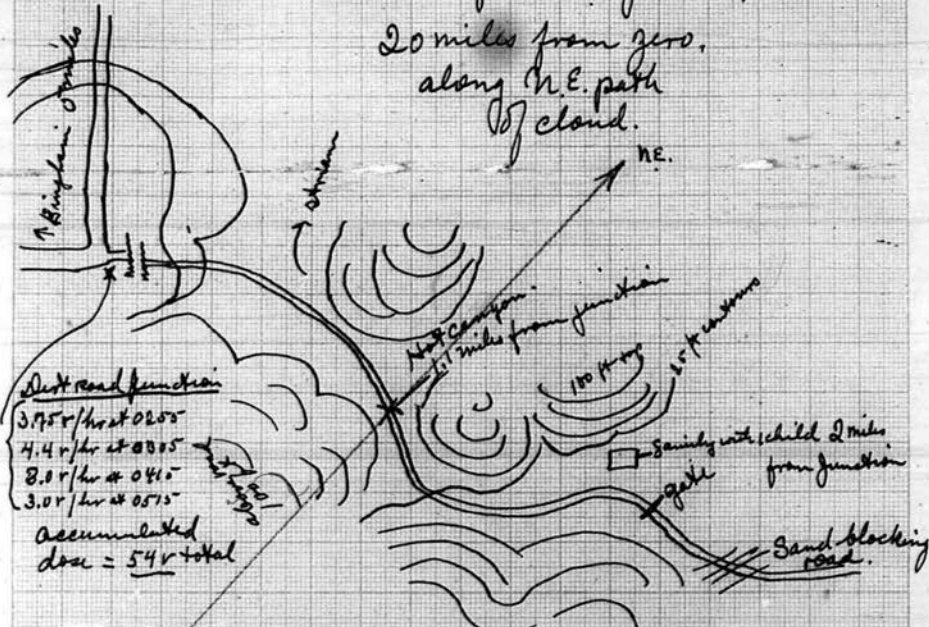 20 miles from zero,
along N.E. path
of cloud.
N.E.
↑ Bingham 0 miles
↑ stream
Hot Canyon.
1.1 miles from junction
100 ft top
25 ft contours
Family with 1 child 2 miles
from Junction
gate
Sand blocking
road.
Dirt road Junction
3.75 r/hr at 0255
4.4 r/hr at 0305
8.0 r/hr at 0415
3.0 r/hr at 0515
accumulated
dose = 54 r total